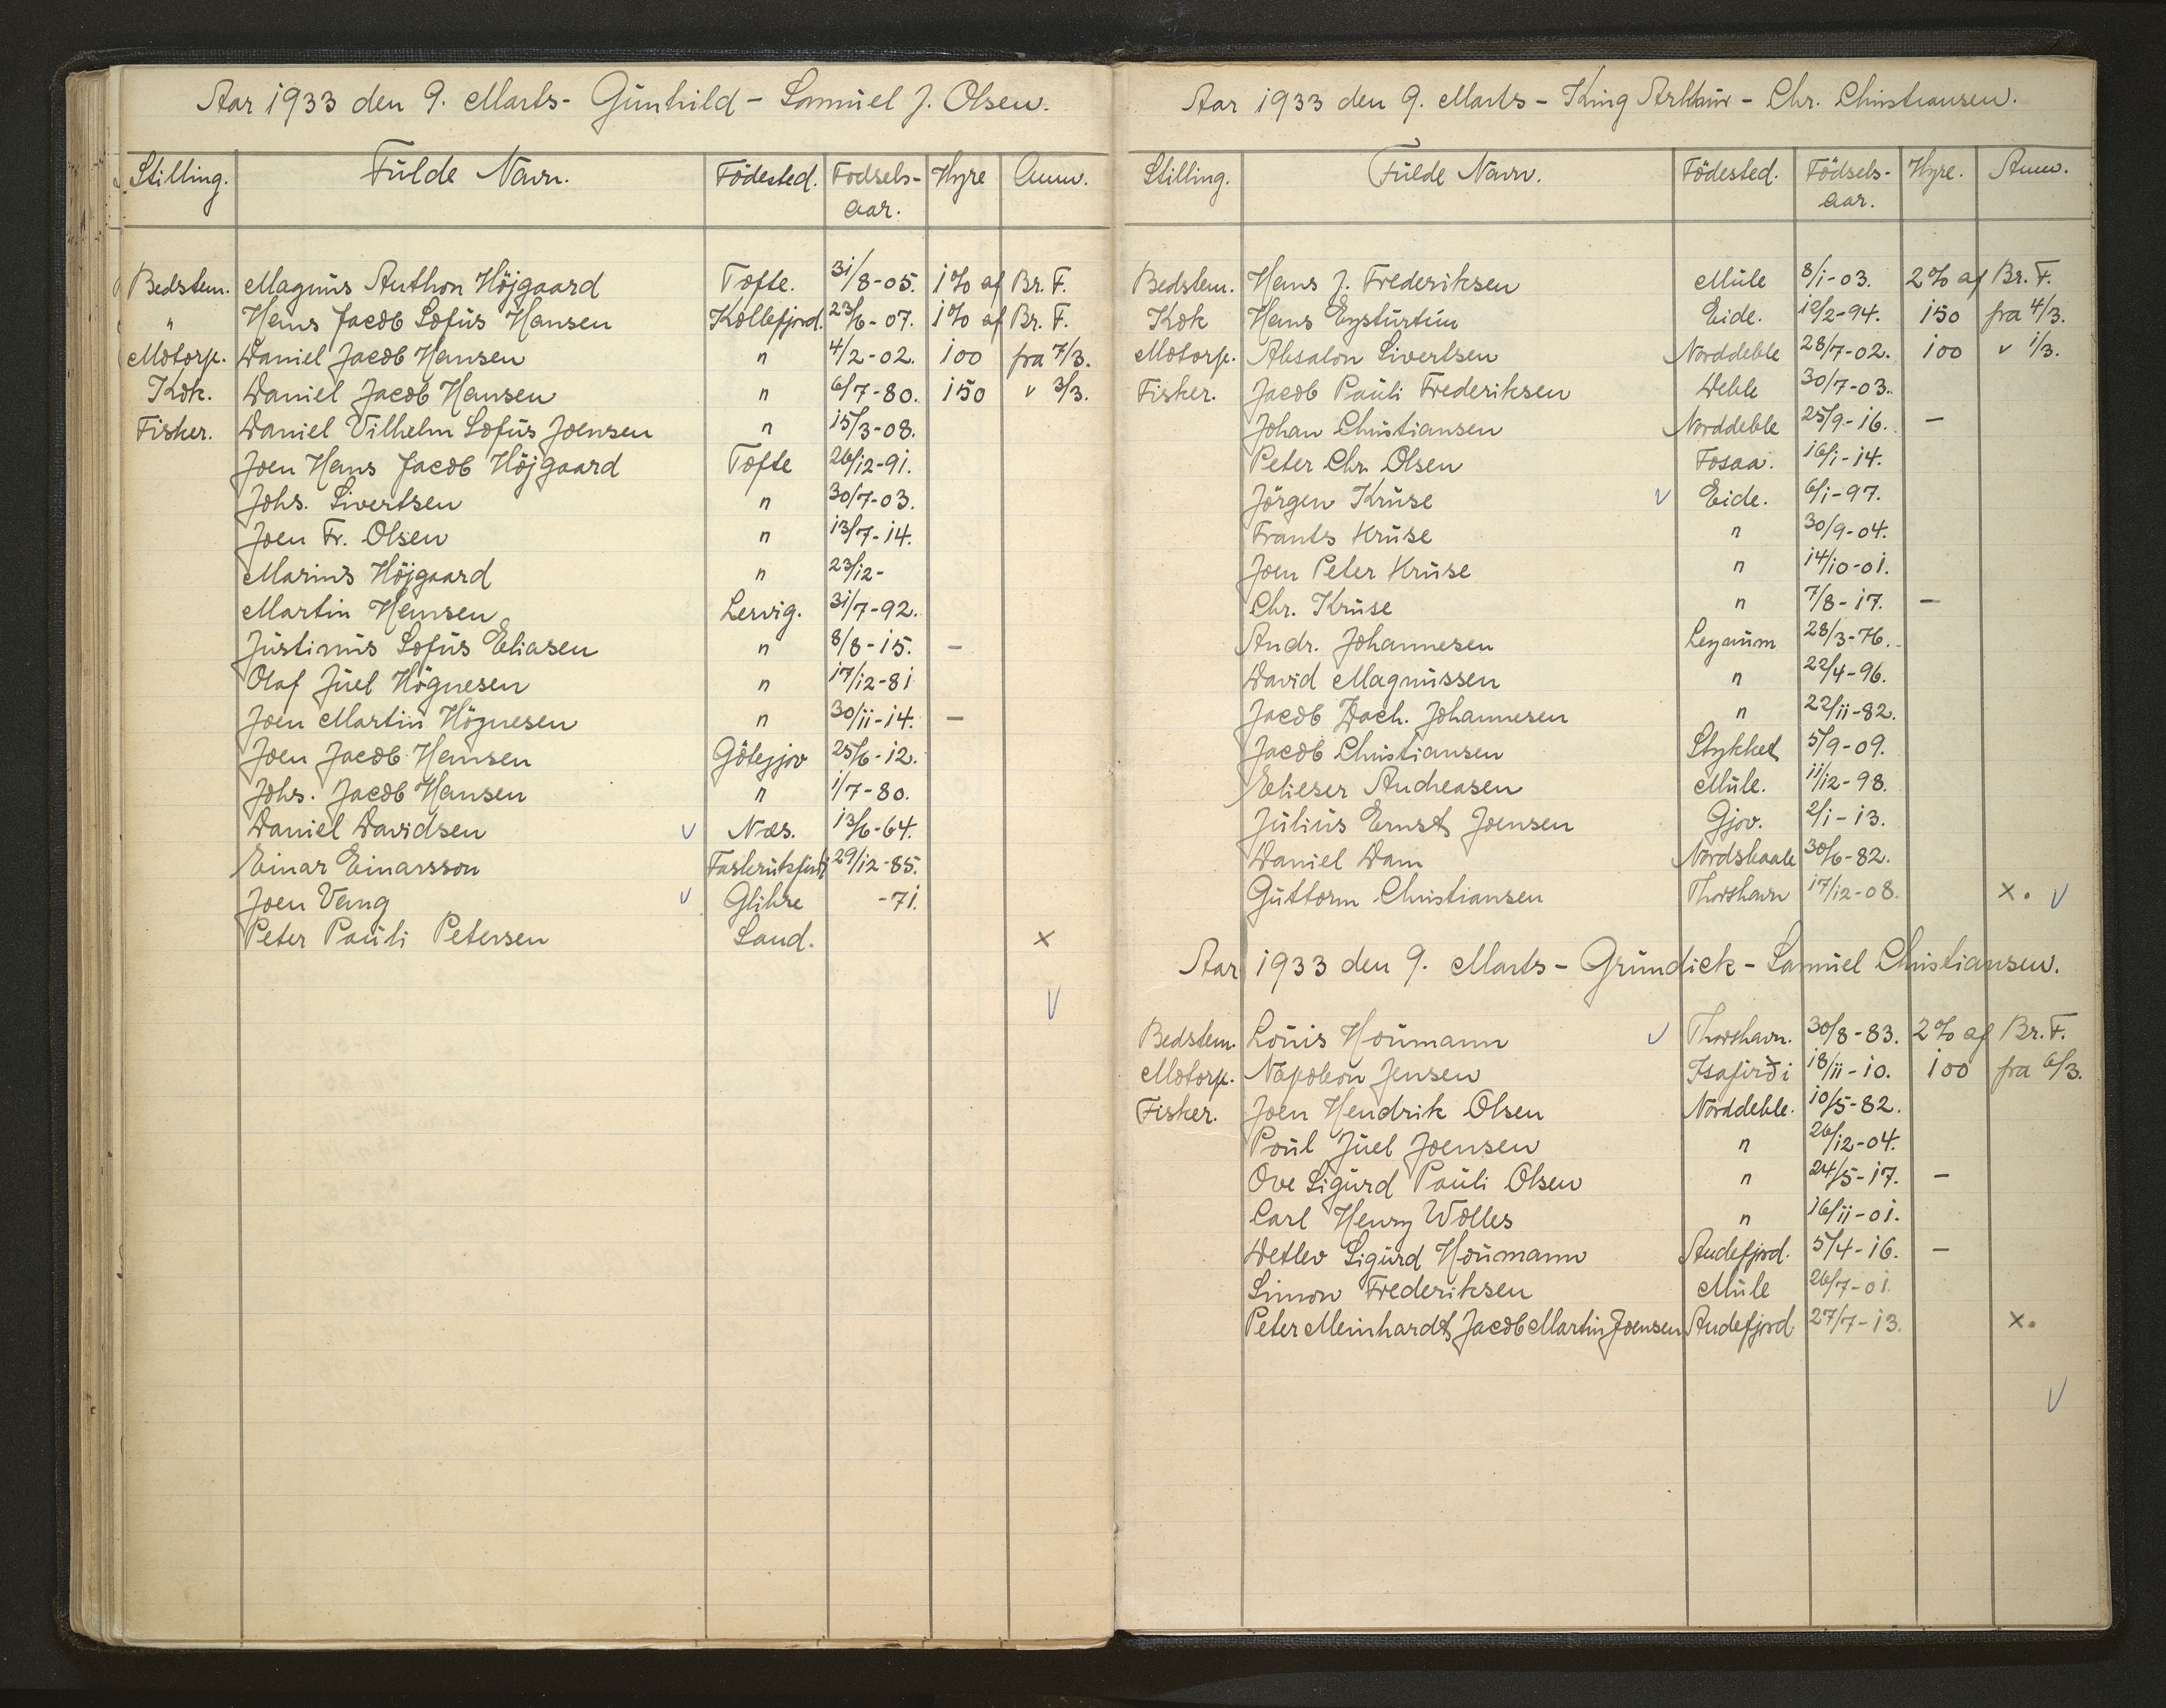 Aar 1933 den 9. Marts - Gunhild - Samuel J. Olsen.
Stilling. Fulde Navn. Födested. Födsels-aar. Hyre Anm.
Bedstem. Magnus Anthon Höjgaard Tofte. 31/8-05. 1% af Br. F.
" Hans Jacob Sofus Hansen Kollefjord. 23/6-07. 1% af Br. F.
Motorp. Daniel Jacob Hansen " 4/2-02. 100 fra 7/3.
Kok. Daniel Jacob Hansen " 6/7-80. 150 " 3/3.
Fisker. Daniel Vilhelm Sofus Joensen " 15/3-08.
Joen Hans Jacob Höjgaard Tofte 26/12-91.
Johs. Sivertsen " 30/7-03.
Joen Fr. Olsen " 13/7-14.
Marius Höjgaard " 23/12-
Martin Hansen Lervig. 31/7-92.
Justinus Sofus Eliasen " 8/8-15. -
Olaf Juel Högnesen " 17/12-81
Joen Martin Högnesen " 30/11-14. -
Joen Jacob Hansen Götegjov 25/6-12.
Johs. Jacob Hansen " 1/7-80.
Daniel Davidsen v Næs. 13/6-64.
Einar Einarsson 29/12-85.
Joen Vang v Glibre -71.
Peter Pauli Petersen Sand. x
v
Aar 1933 den 9. Marts - King Arthur - Chr. Christiansen.
Stilling. Fulde Navn. Födested. Födsels-aar. Hyre. Anm.
Bedstem. Hans J. Frederiksen Mule 8/1-03. 2% af Br. F.
Kok Hans Eysturtun Eide. 12/2-94. 150 fra 4/3.
Motorp. Absalon Sivertsen Norddeble 28/7-02. 100 " 1/3.
Fisker. Jacob Pauli Frederiksen Deble 30/7-03.
Johan Christiansen Norddeble 25/9-16. -
Peter Chr. Olsen Fosaa. 16/1-14.
Jörgen Kruse v Eide. 6/1-97.
Frants Kruse " 30/9-04.
Joen Peter Kruse " 14/10-01.
Chr. Kruse " 7/8-17. -
Andr. Johannesen Leynum 28/3-76.
David Magnussen " 22/4-96.
Jacob Zach. Johannesen " 22/11-82.
Jacob Christiansen Stykket 5/9-09.
Elieser Andreasen Mule. 11/12-98.
Julius Ernst Joensen Gjov. 2/1-13.
Daniel Dam Nordskaale 30/6-82.
Guttorm Christiansen Thorshavn 17/12-08. x. v
Aar 1933 den 9. Marts - Grundick - Samuel Christiansen.
Bedstem. Louis Houmann v Thorshavn. 30/8-83. 2% af Br. F.
Motorp. Napoleon Jensen Isafirði 18/11-10. 100 fra 6/3.
Fisker. Joen Hendrik Olsen Norddeble. 10/5-82.
Poul Juel Joensen " 26/12-04.
Ove Sigurd Pauli Olsen " 24/5-17. -
Carl Henry Wolles " 16/11-01.
Detlev Sigurd Houmann Andefjord. 5/4-16. -
Simon Frederiksen Mule 26/7-01
Peter Meinhardt Jacob Martin Joensen Andefjord 27/7-13. x.
v